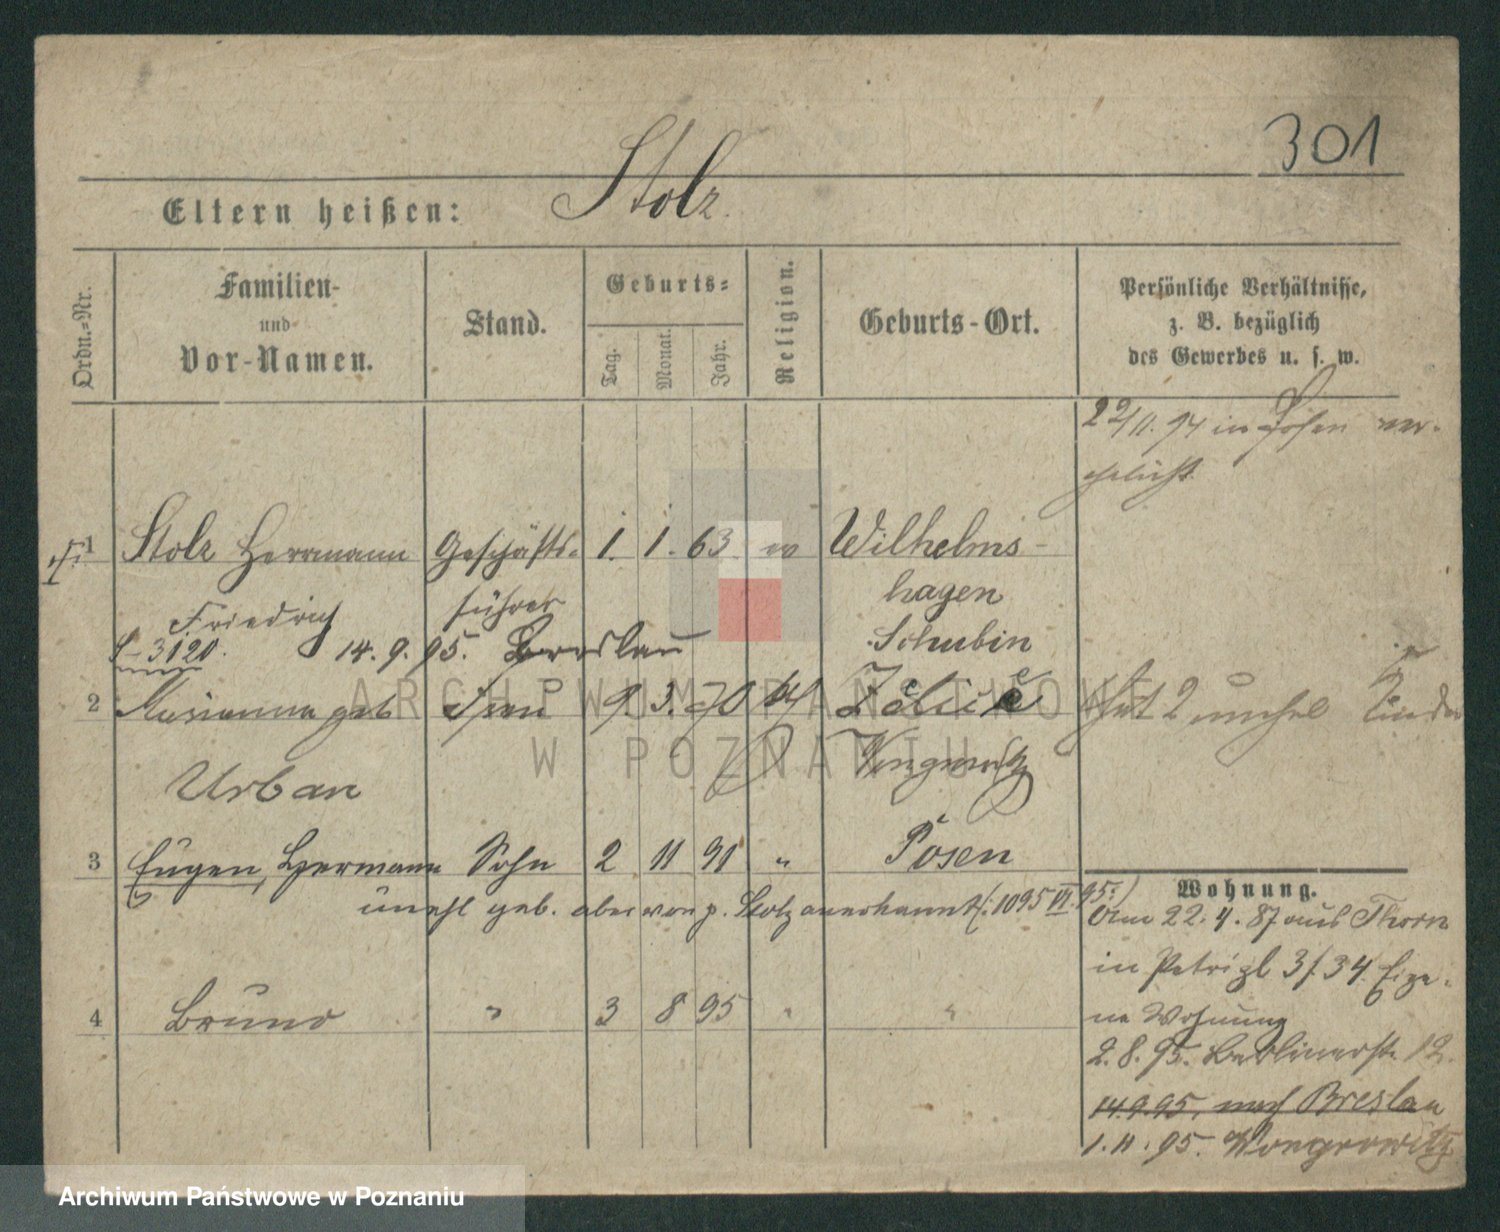 301
Eltern heißen: Stolz.
Ordn.-Nr.
Familien-
und
Vor-Namen.
Stand.
Geburts-
Tag.
Monat.
Jahr.
Religion.
Geburts-Ort.
Persönliche Verhältnisse,
z. B. bezüglich
des Gewerbes u. s. w.
22/11. 94 in Posen ver-
ehelicht
1 Stolz Herrmann Geschäfts- 1. 1. 63 ev Wilhelms-
Friedrich führer hagen
3120. 14. 9. 95. Breslau Schubin
2 Marianna geb Frau 9. 3. 70 Hat 2 unehel Kinder
Urban Wongrowitz
3 Eugen, Hermann Sohn 2 11 91 " Posen
unehl geb. aber von p. Stolz anerkannt (:1095 VI. 95:)
4 Bruno " 3 8 95 " "
Wohnung.
Am 22. 4. 87 aus Thorn
in Petripl 3/34 Eige-
ne Wohnung
2. 8. 95. Berlinerstr 12.
14.9.95. nach Breslau
1. 11. 95. Wongrowitz
ARCHIWUM PAŃSTWOWE
W POZNANIU
Archiwum Państwowe w Poznaniu